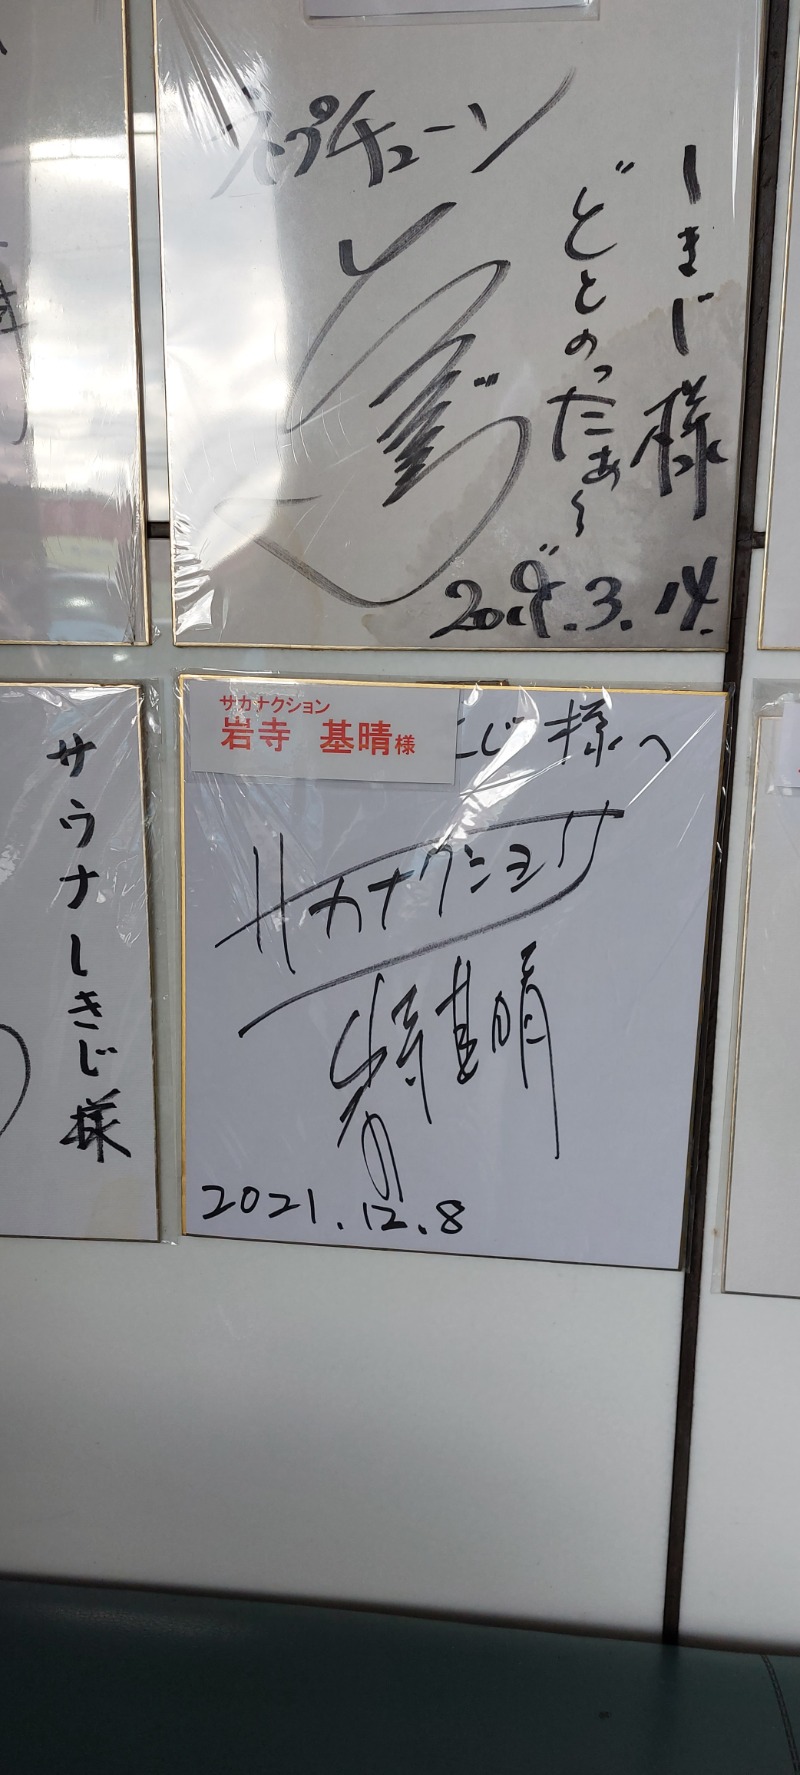 ネプチューン
しまじ様
"ととのったぁ〜"
2019.3.14.
サカナクション
岩寺 基晴様
様へ
サカナクション
岩寺基晴
2021.12.8
サウナしきじ様